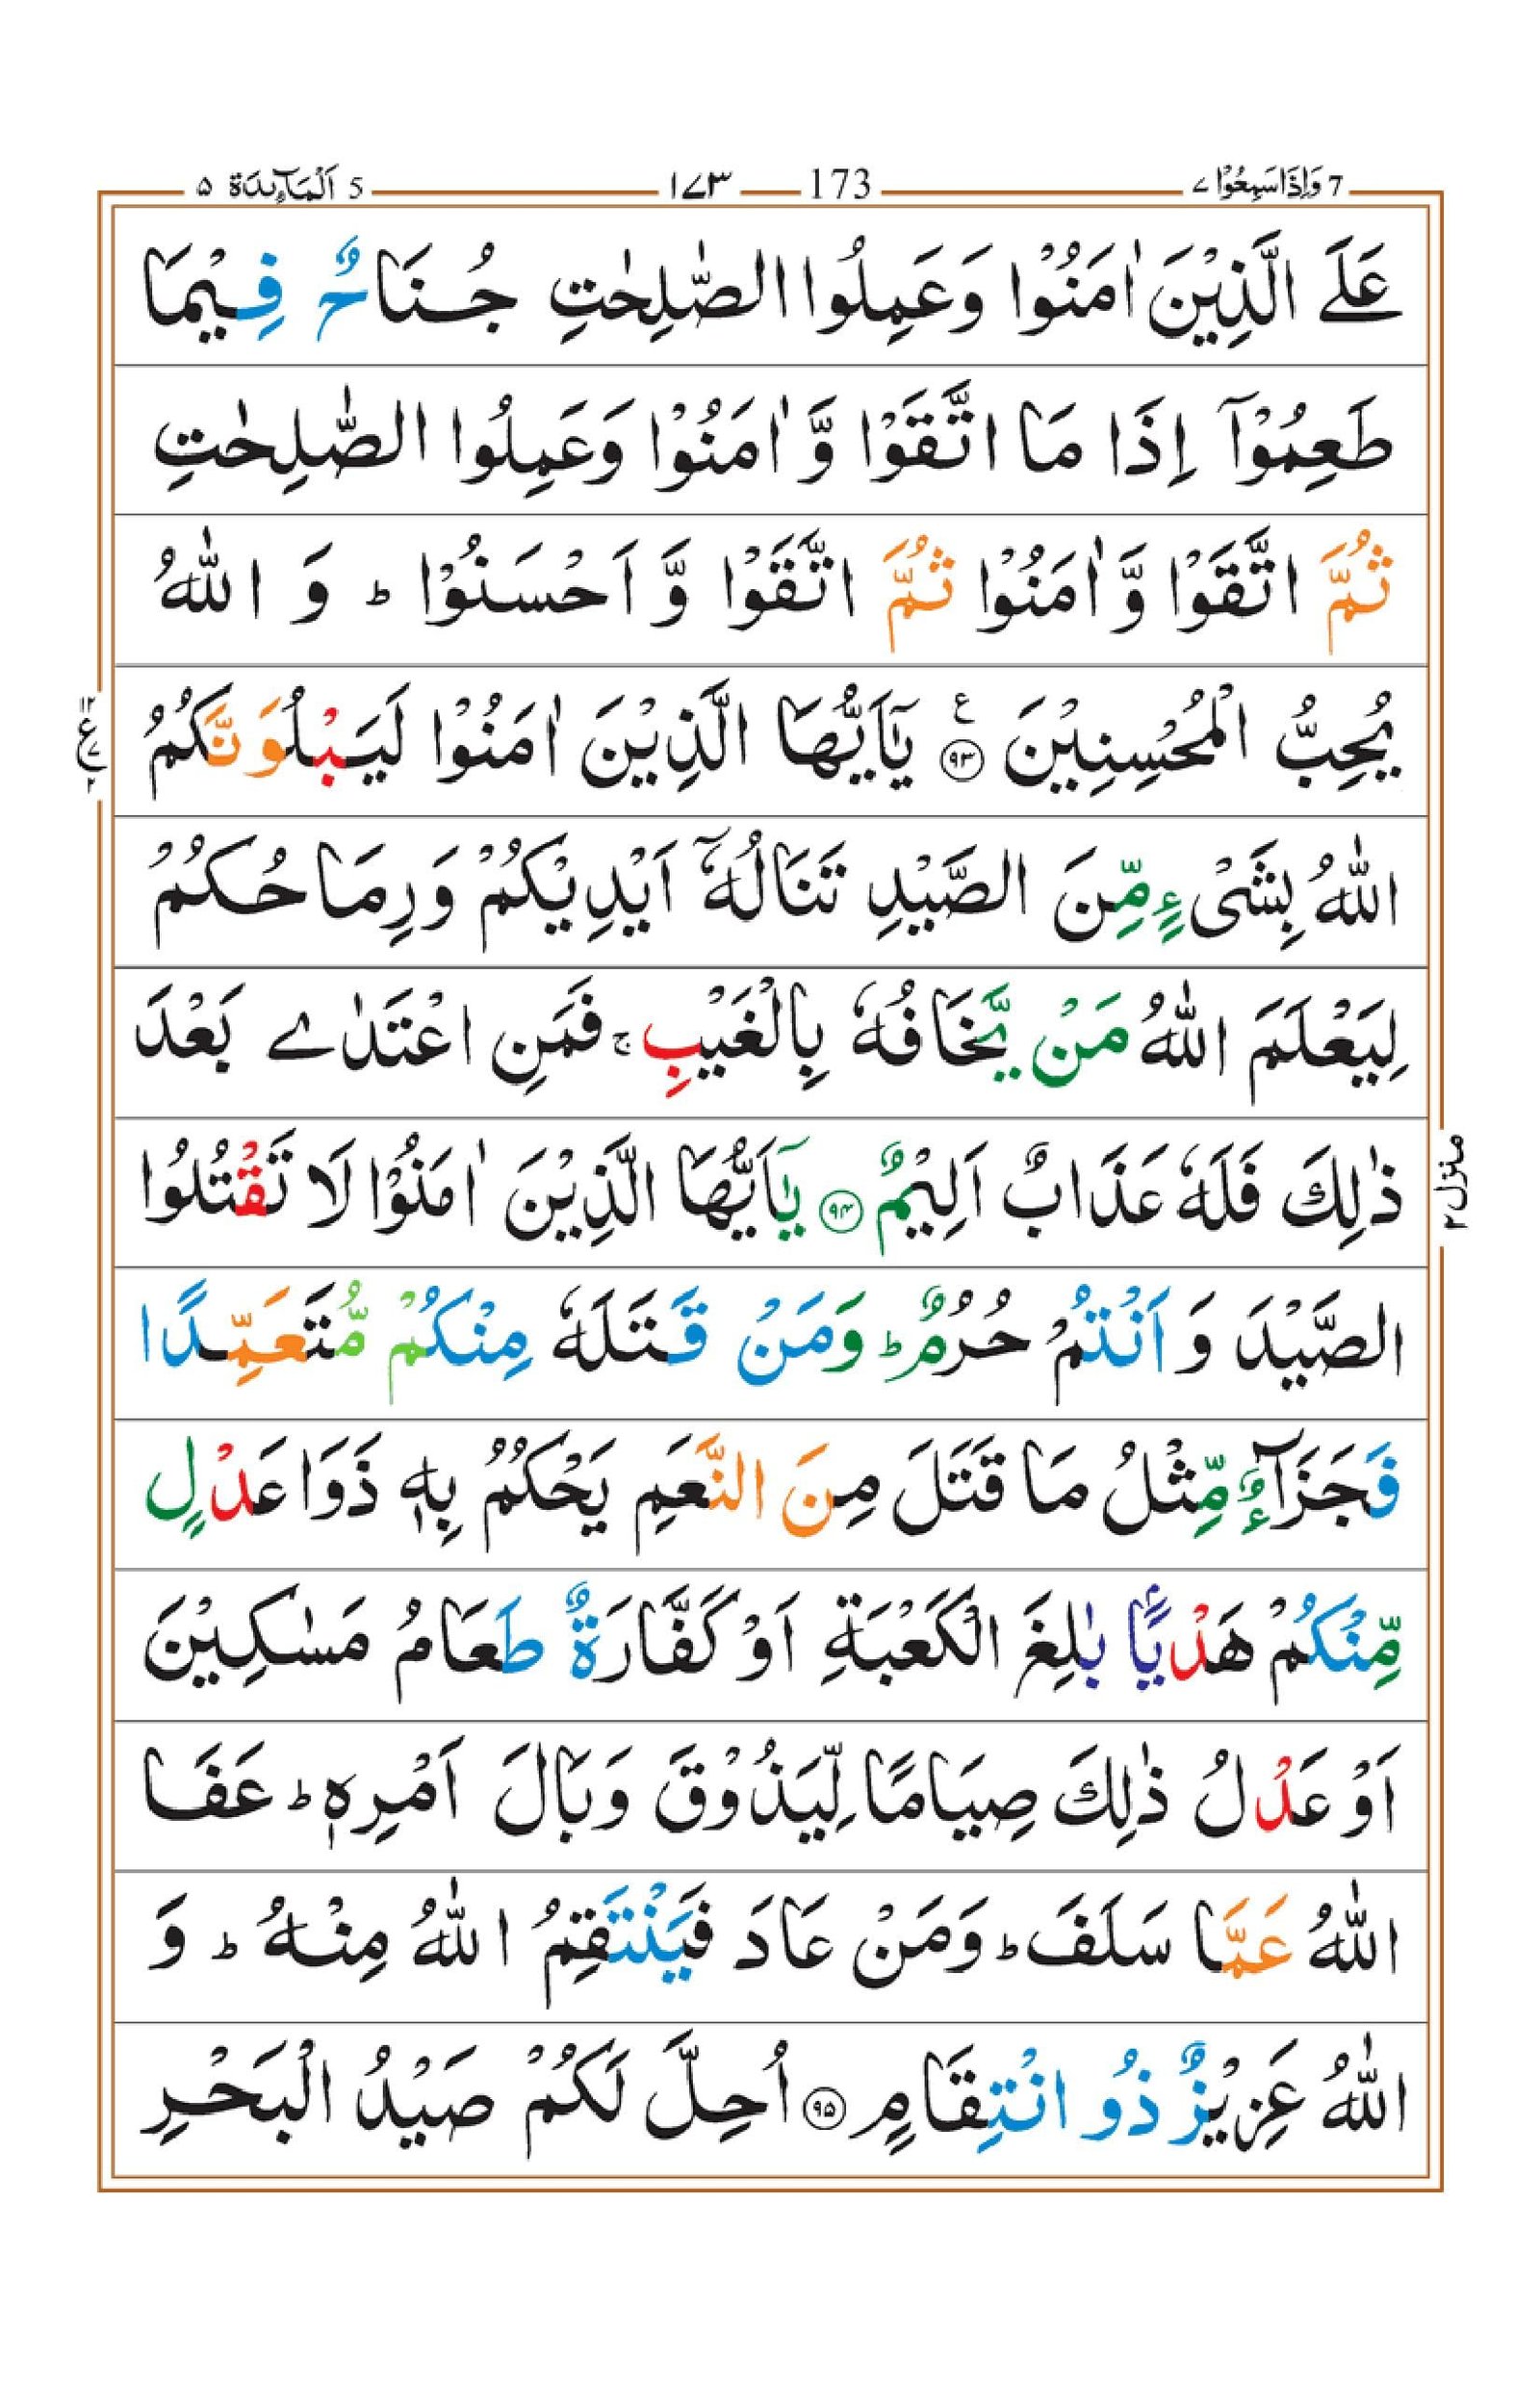 7 وَاِذَا سَمِعُوْا ۷ 173 ۱۷۳ 5 اَلْمَآئِدَة ۵
عَلَے الَّذِيْنَ اٰمَنُوْا وَعَمِلُوا الصّٰلِحٰتِ جُنَاحٌ فِيْمَا
طَعِمُوْۤا اِذَا مَا اتَّقَوْا وَّ اٰمَنُوْا وَعَمِلُوا الصّٰلِحٰتِ
ثُمَّ اتَّقَوْا وَّ اٰمَنُوْا ثُمَّ اتَّقَوْا وَّ اَحْسَنُوْا ؕ وَ اللّٰهُ
يُحِبُّ الْمُحْسِنِيْنَ ۩ع ﴿۹۳﴾ يٰۤاَيُّهَا الَّذِيْنَ اٰمَنُوْا لَيَبْلُوَنَّكُمُ
اللّٰهُ بِشَیْءٍ مِّنَ الصَّيْدِ تَنَالُهٗۤ اَيْدِيْكُمْ وَرِمَاحُكُمْ
لِيَعْلَمَ اللّٰهُ مَنْ يَّخَافُهٗ بِالْغَيْبِ ۚ فَمَنِ اعْتَدٰے بَعْدَ
ذٰلِكَ فَلَهٗ عَذَابٌ اَلِيْمٌ ﴿۹۴﴾ يٰۤاَيُّهَا الَّذِيْنَ اٰمَنُوْا لَا تَقْتُلُوا
الصَّيْدَ وَ اَنْتُمْ حُرُمٌ ؕ وَمَنْ قَتَلَهٗ مِنْكُمْ مُّتَعَمِّدًا
فَجَزَآءٌ مِّثْلُ مَا قَتَلَ مِنَ النَّعَمِ يَحْكُمُ بِهٖ ذَوَا عَدْلٍ
مِّنْكُمْ هَدْيًۢا بٰلِغَ الْكَعْبَةِ اَوْ كَفَّارَةٌ طَعَامُ مَسٰكِيْنَ
اَوْ عَدْلُ ذٰلِكَ صِيَامًا لِّيَذُوْقَ وَبَالَ اَمْرِهٖ ؕ عَفَا
اللّٰهُ عَمَّا سَلَفَ ؕ وَمَنْ عَادَ فَيَنْتَقِمُ اللّٰهُ مِنْهُ ؕ وَ
اللّٰهُ عَزِيْزٌ ذُو انْتِقَامٍ ﴿۹۵﴾ اُحِلَّ لَكُمْ صَيْدُ الْبَحْرِ
منزل۲